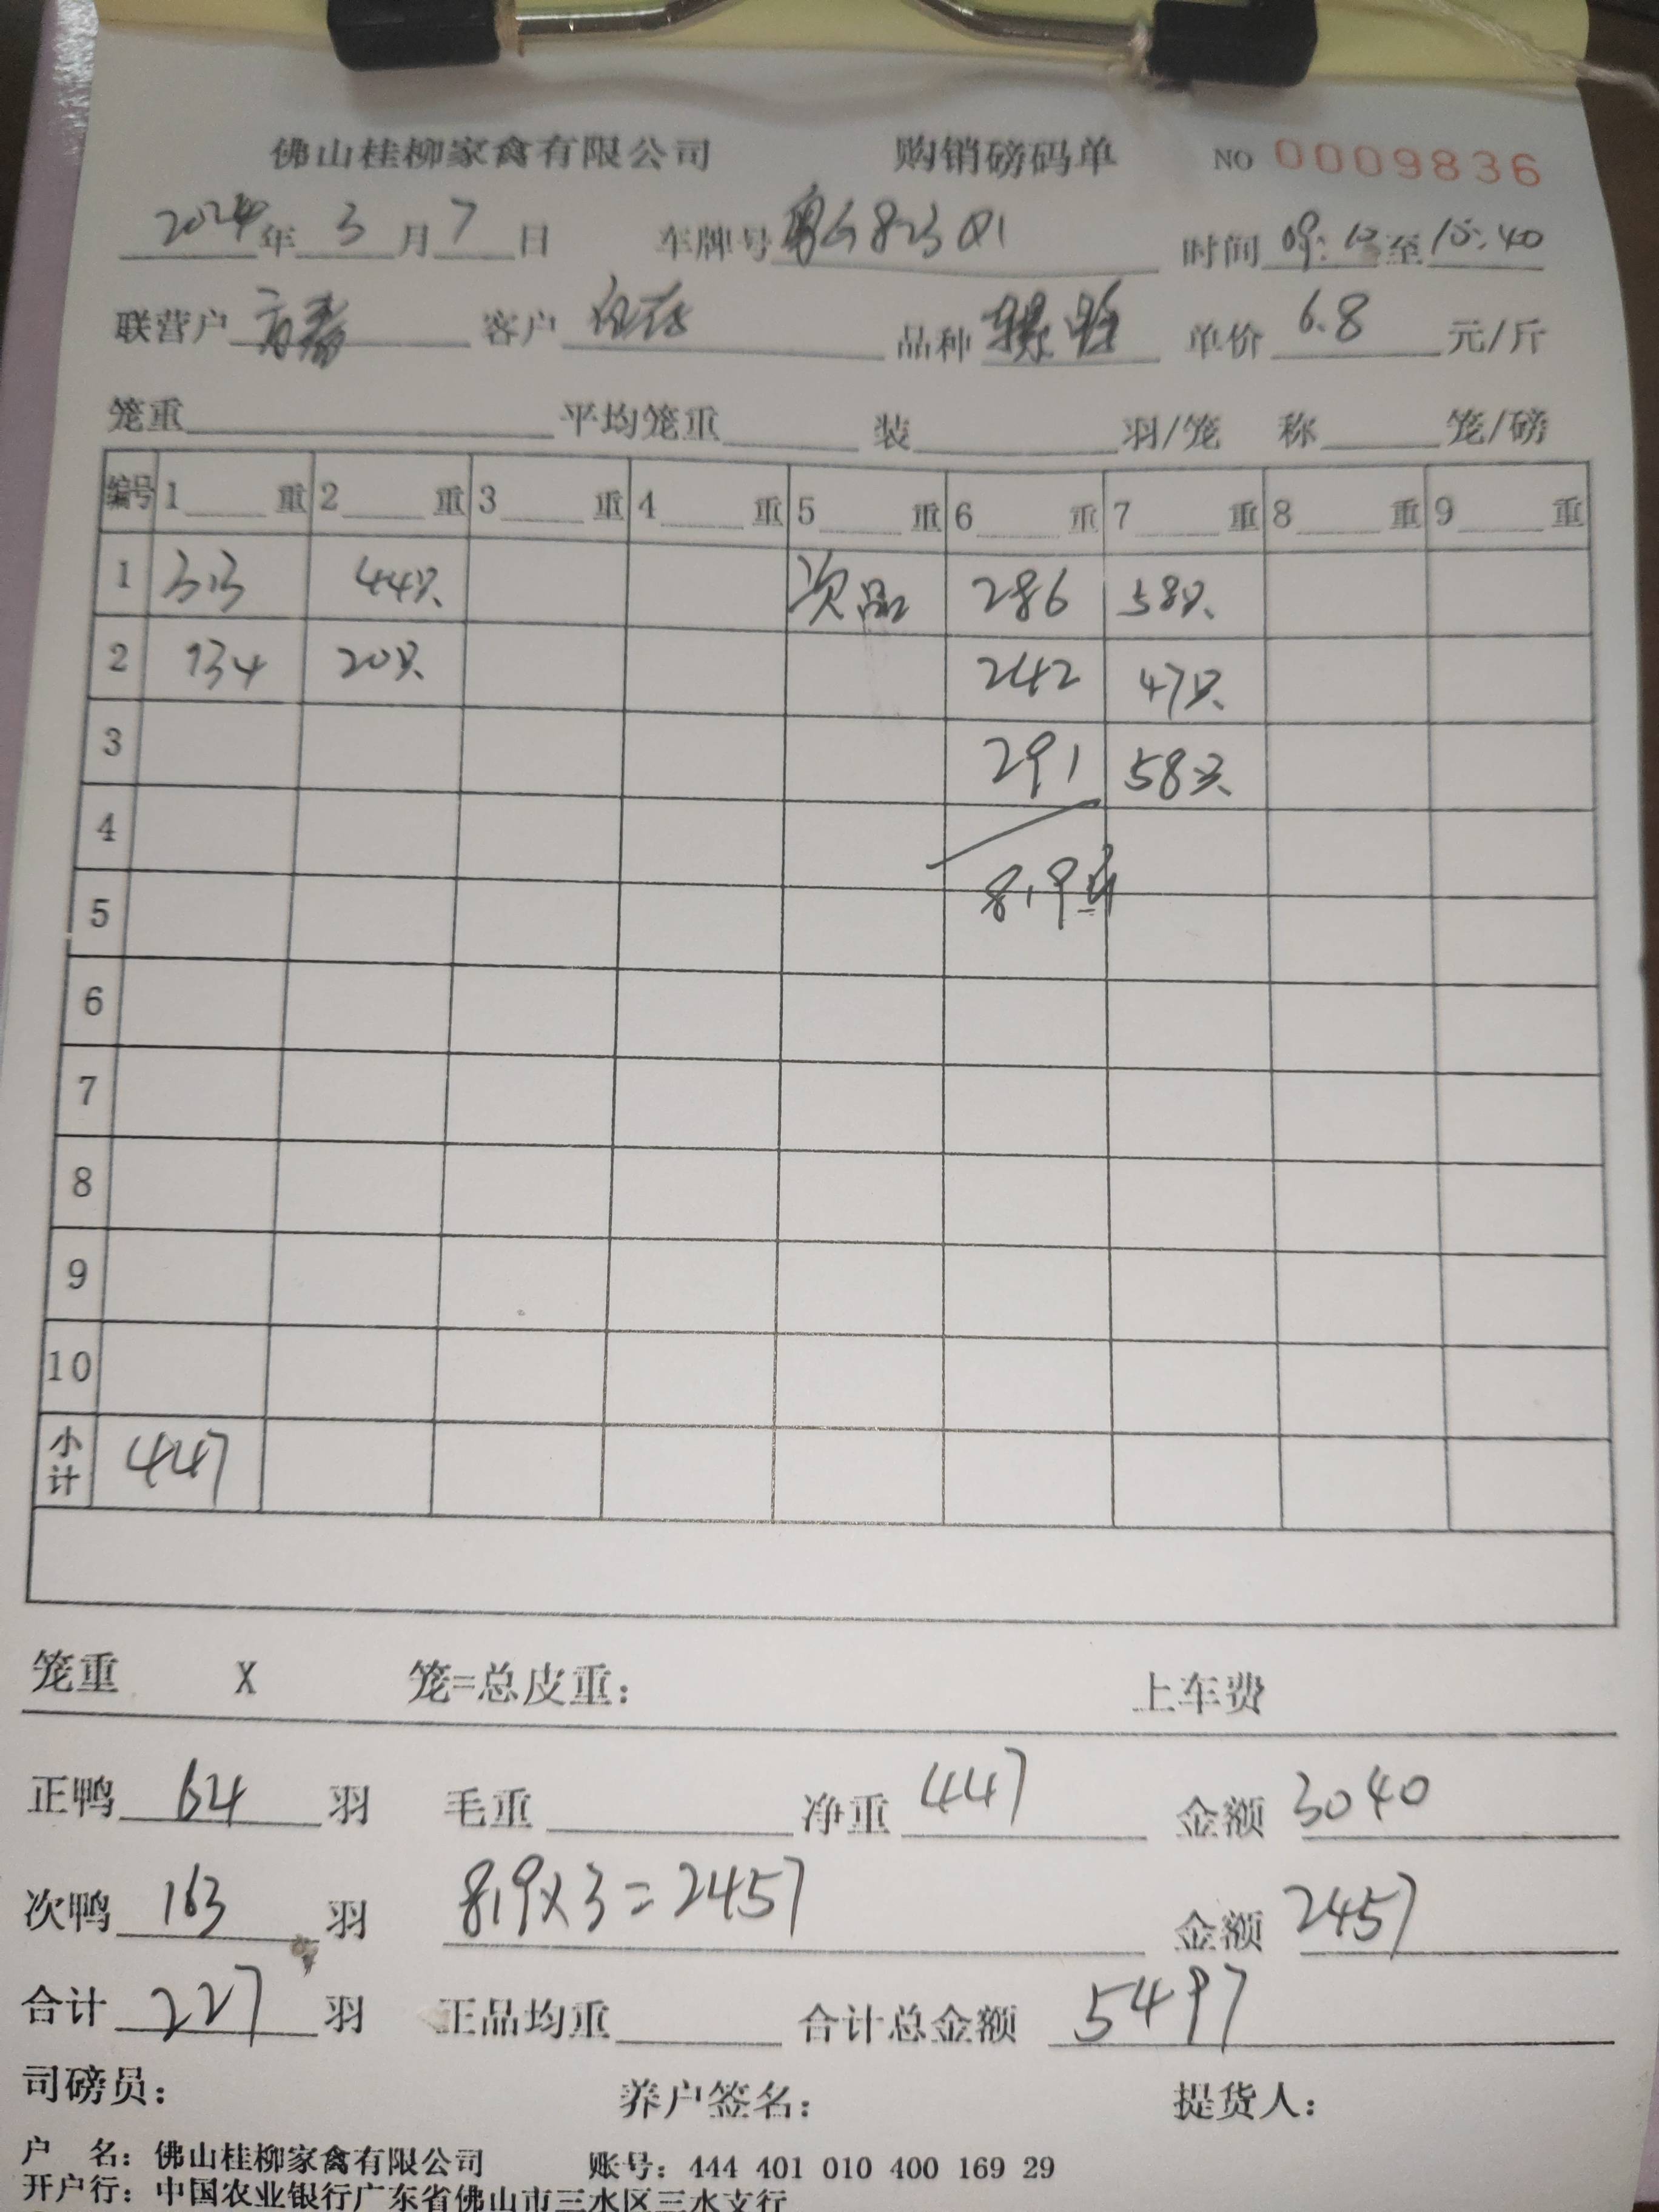 佛山桂柳家禽有限公司 购销磅码单 NO 0009836
2024年 3 月 7 日 车牌号 时间 09:10 至 10:40
联营户 客户 品种 单价 6.8 元/斤
笼重 平均笼重 装 羽/笼 称 笼/磅
编号 1 重 2 重 3 重 4 重 5 重 6 重 7 重 8 重 9 重
1 313 44只 次品 286 58只
2 134 20只 242 47只
3 291 58只
4
5 819斤
6
7
8
9
10
小计 447
笼重 X 笼=总皮重: 上车费
正鸭 64 羽 毛重 净重 447 金额 3040
次鸭 163 羽 819×3=2457 金额 2457
合计 227 羽 正品均重 合计总金额 5497
司磅员: 养户签名: 提货人:
户 名: 佛山桂柳家禽有限公司 账号: 444 401 010 400 169 29
开户行: 中国农业银行广东省佛山市三水区三水支行